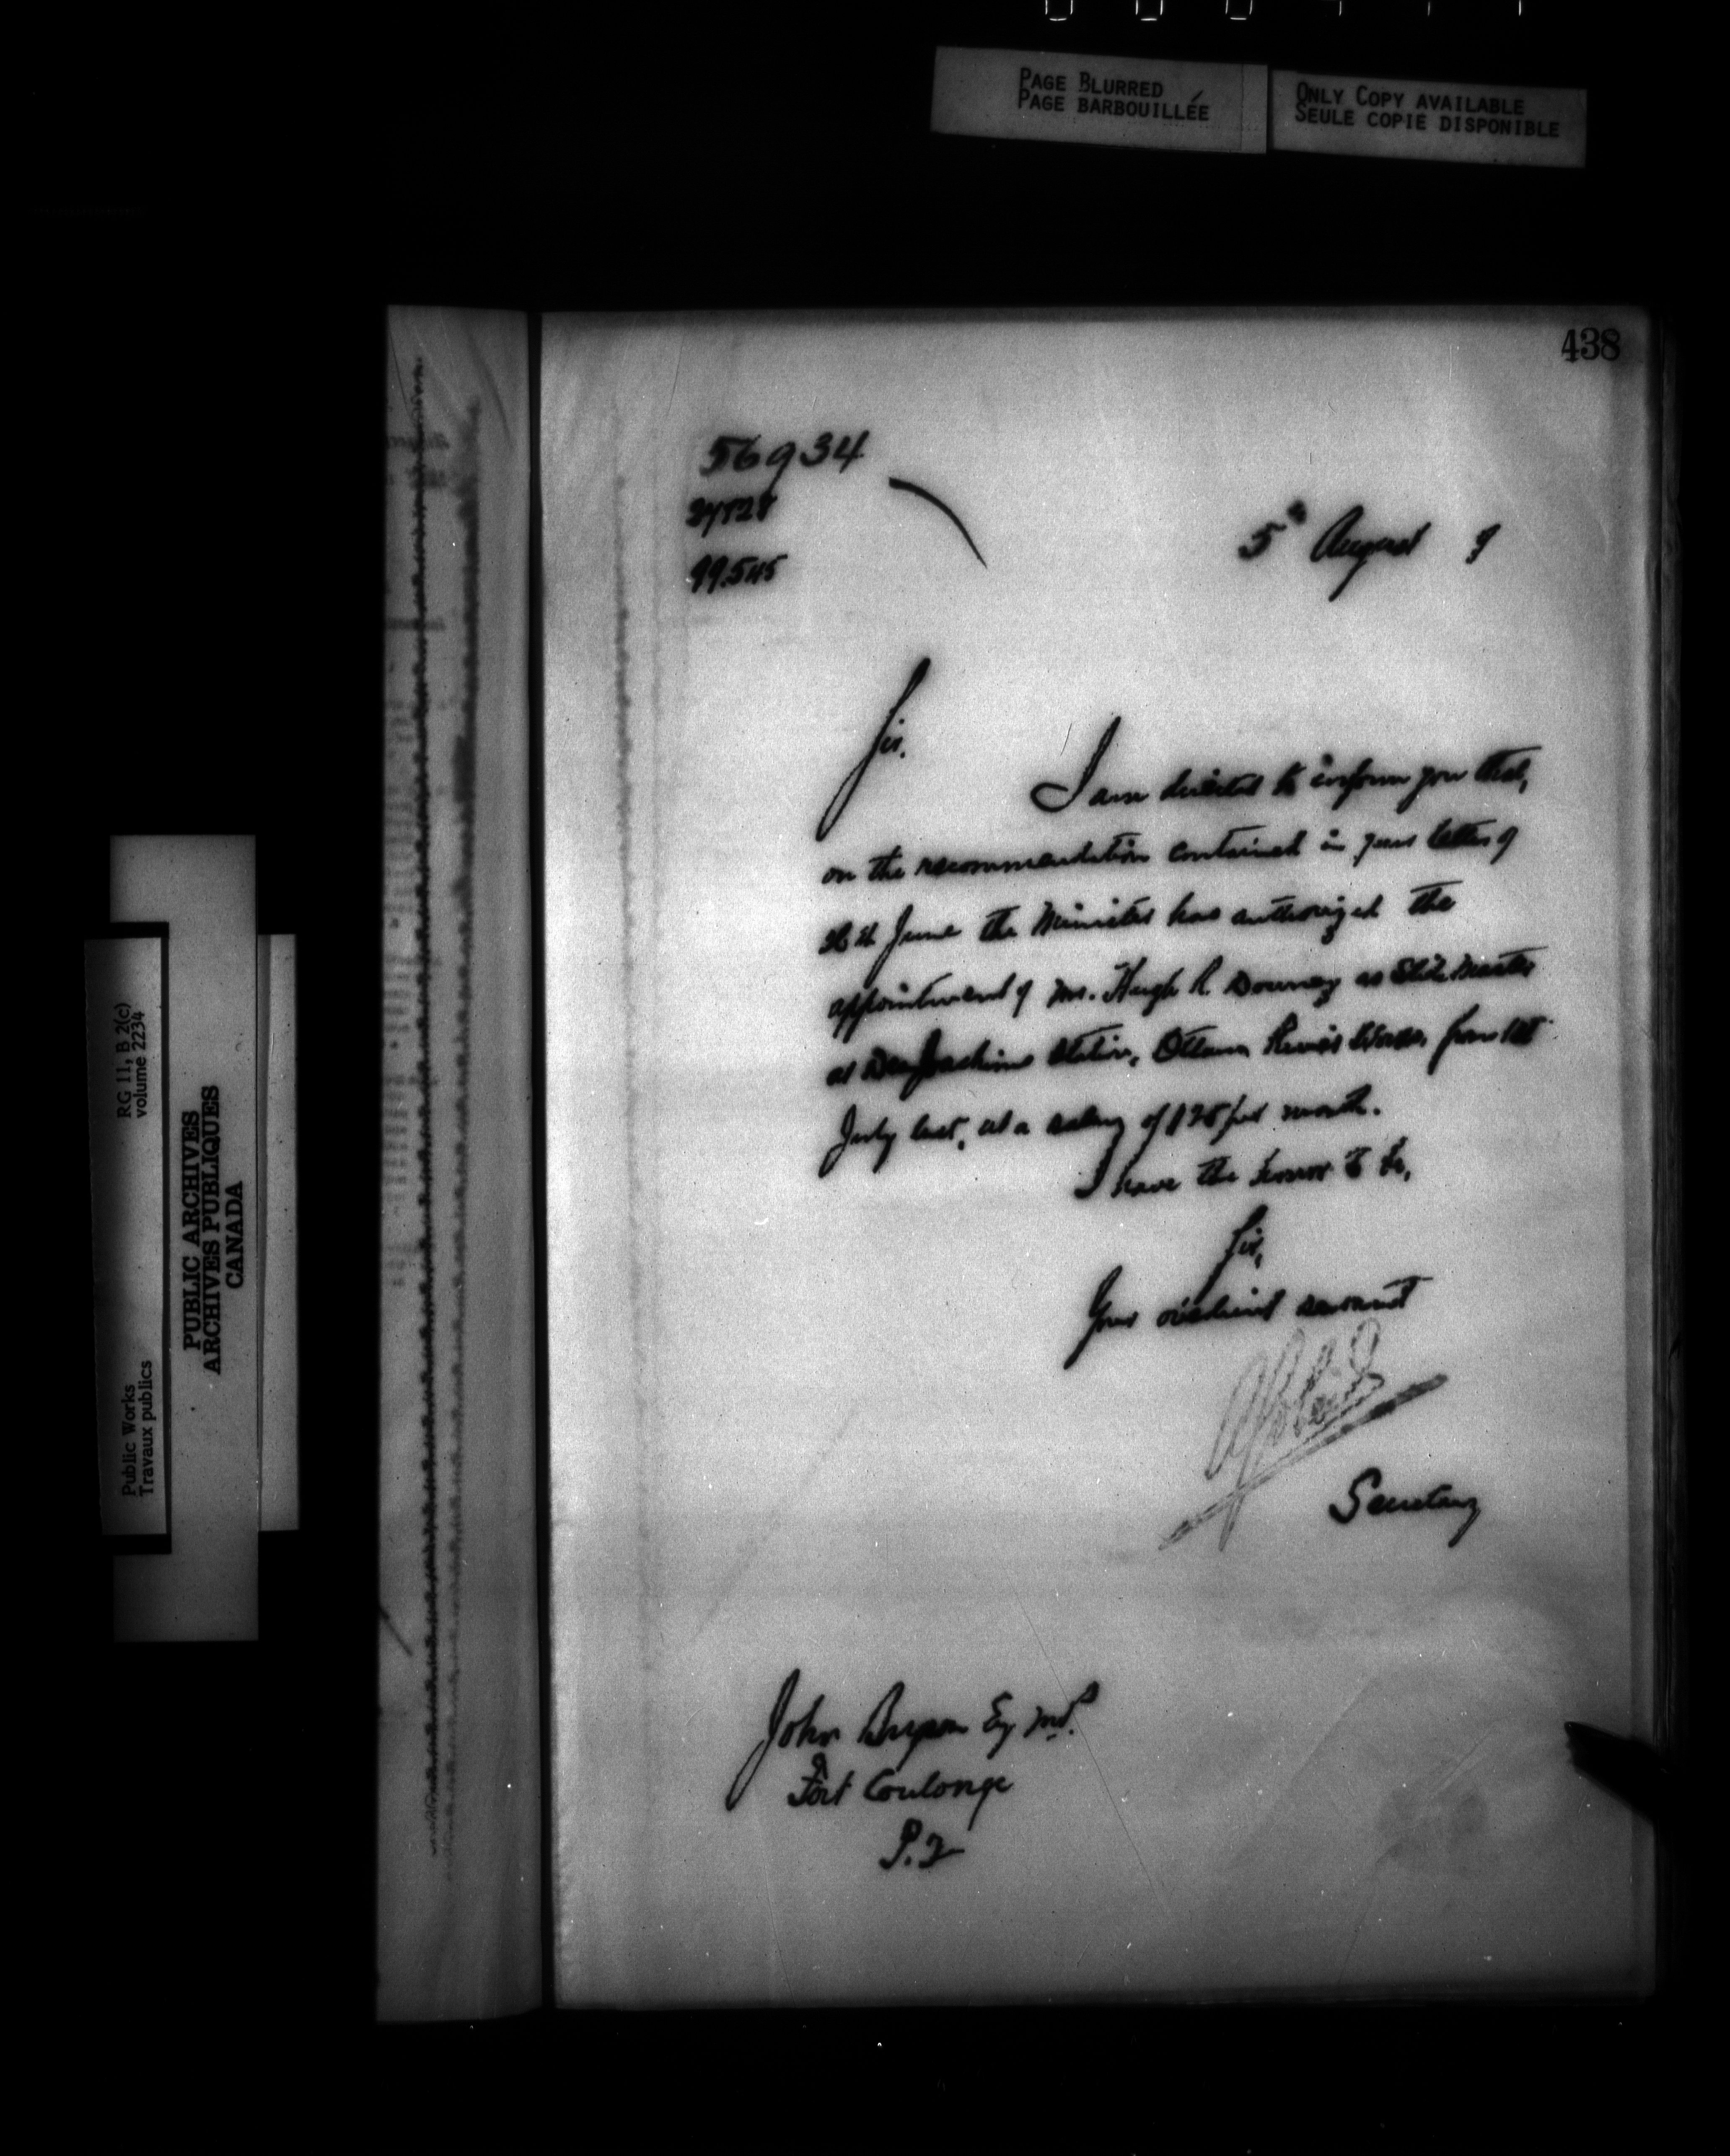 PAGE BLURRED
PAGE BARBOUILLÉE
ONLY COPY AVAILABLE
SEULE COPIE DISPONIBLE
438
56934
5th August 9
Sir.
I am directed to inform you that,
on the recommendation contained in your letter of
June the Minister has authorized the
appointment of Mr. Hugh R. Downey as Slide Master
at Des Joachims Station, Ottawa River Works, from 1st
July last, at a salary of $25 per month.
I have the honor to be,
Sir,
Your obedient servant
Secretary
John Bryson Esq M.P.
Fort Coulonge
P.Q
RG 11, B 2(c)
volume 2234
PUBLIC ARCHIVES
ARCHIVES PUBLIQUES
CANADA
Public Works
Travaux publics